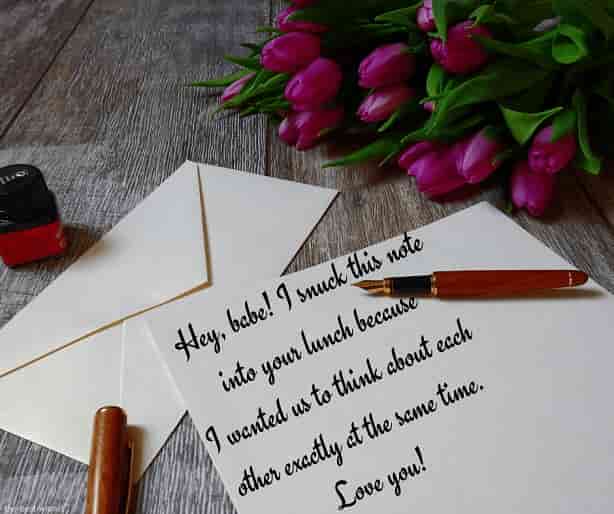 Hey, babe! I snuck this note
into your lunch because
I wanted us to think about each
other exactly at the same time.
Love you!